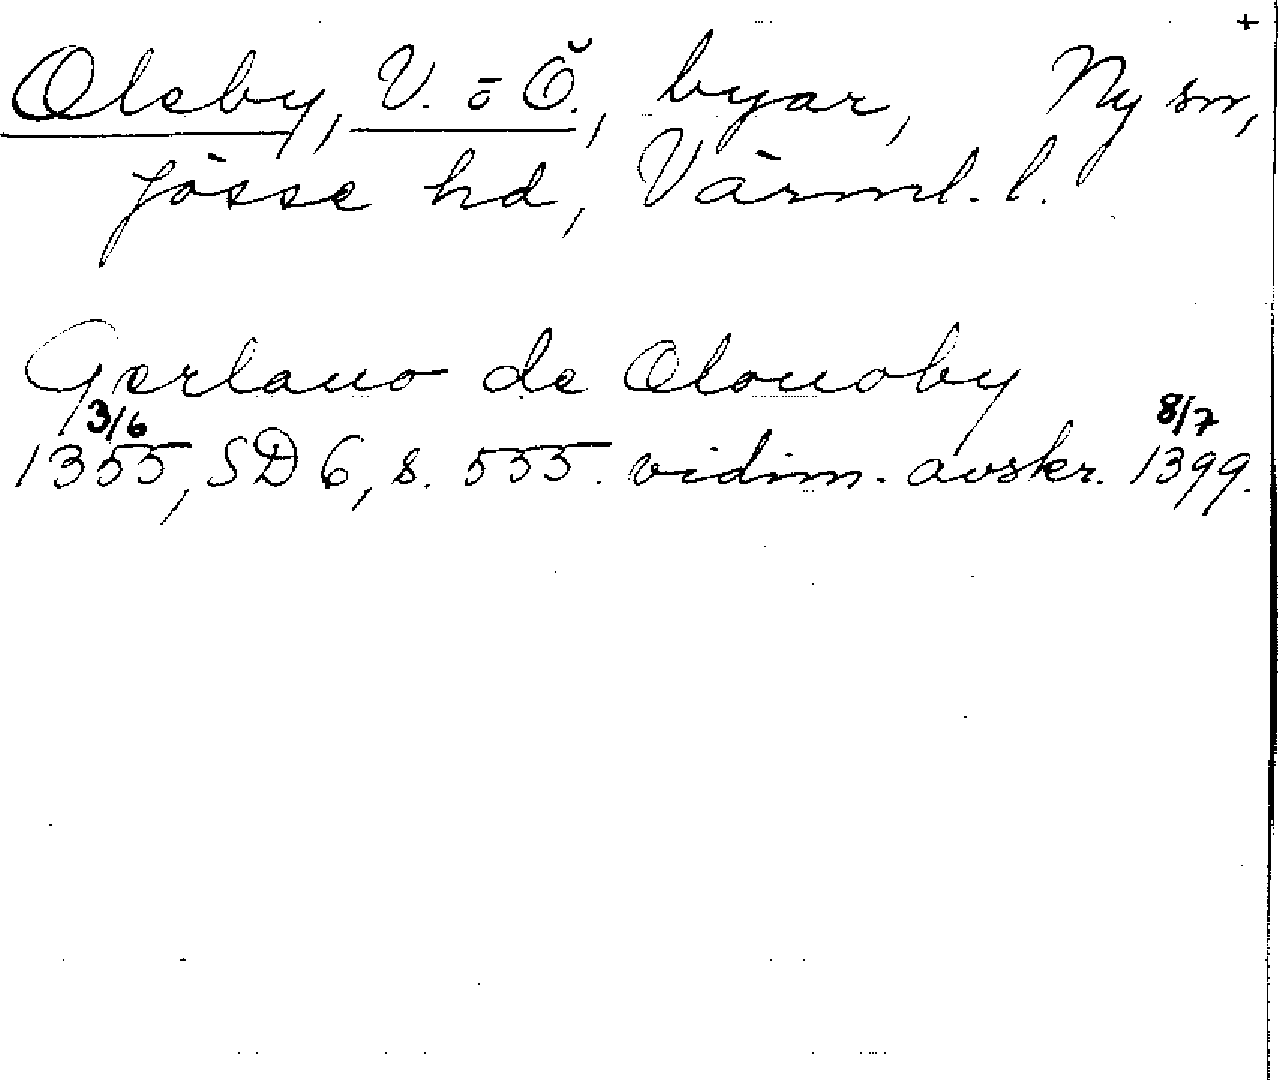 +
Oleby, V. o Ö., byar, Ny sn,
Jösse hd, Värml. l.
Gerlauo de Olouoby
3/6 8/7
1355, SD 6, s. 555. vidim. avskr. 1399.